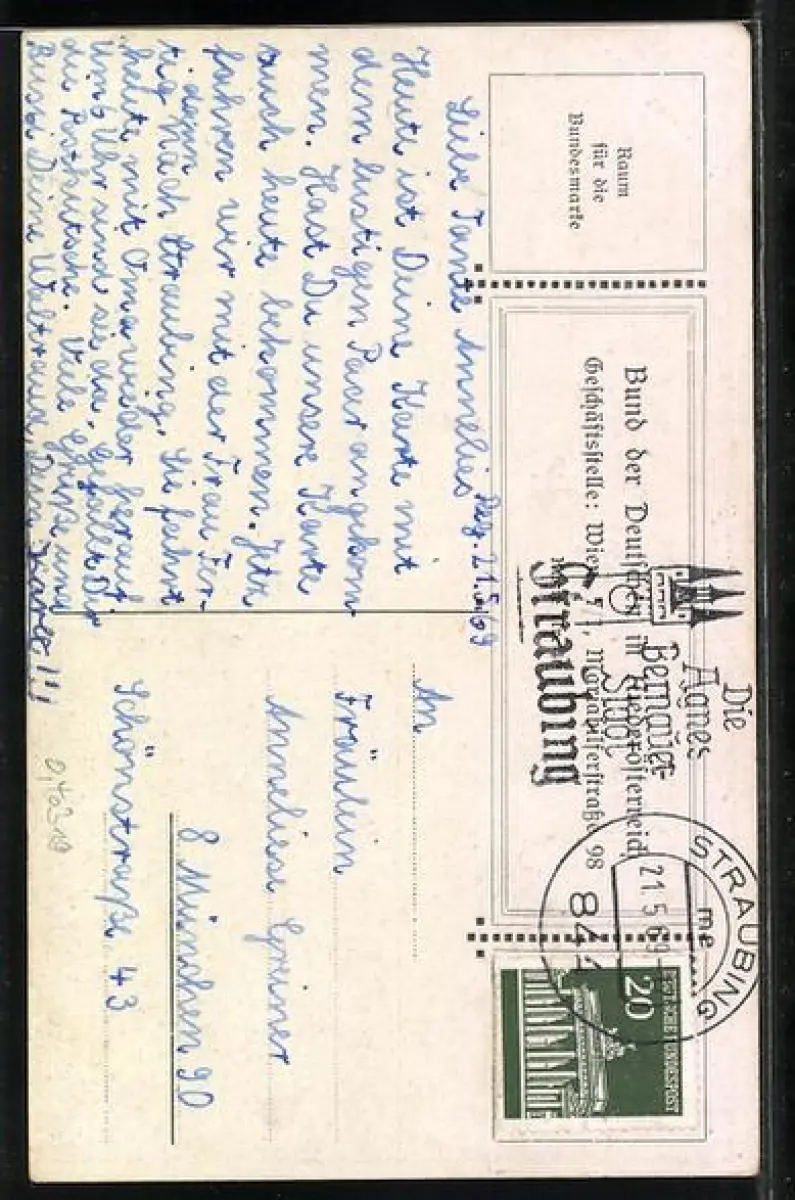 Raum
für die
Bundesmarke
Bund der Deutschen in Niederösterreich
Geschäftsstelle: Wien, Mariahilferstraße 98
Die
Agnes
Bernauer
Stadt
Straubing
STRAUBING
21.5.69
me
844
DEUTSCHE BUNDESPOST
20
Reg. 21.5.69
Liebe Tante Annelies
Heute ist Deine Karte mit
dem lustigen Paar angekom
men. Hast Du unsere Karte
auch heute bekommen. Jetz
fahren wir mit der Frau Fer-
dem
tig nach Straubing. Sie fährt
heute mit Oma wieder herauf.
Um 6 Uhr sind sie da. Gefällt Dir
die Postkutsche. Viele Grüße und
Bussi Deine Waltraud, Dein
An
Fräulein
Anneliese Greiner
8 München 90
Schönstraße 43